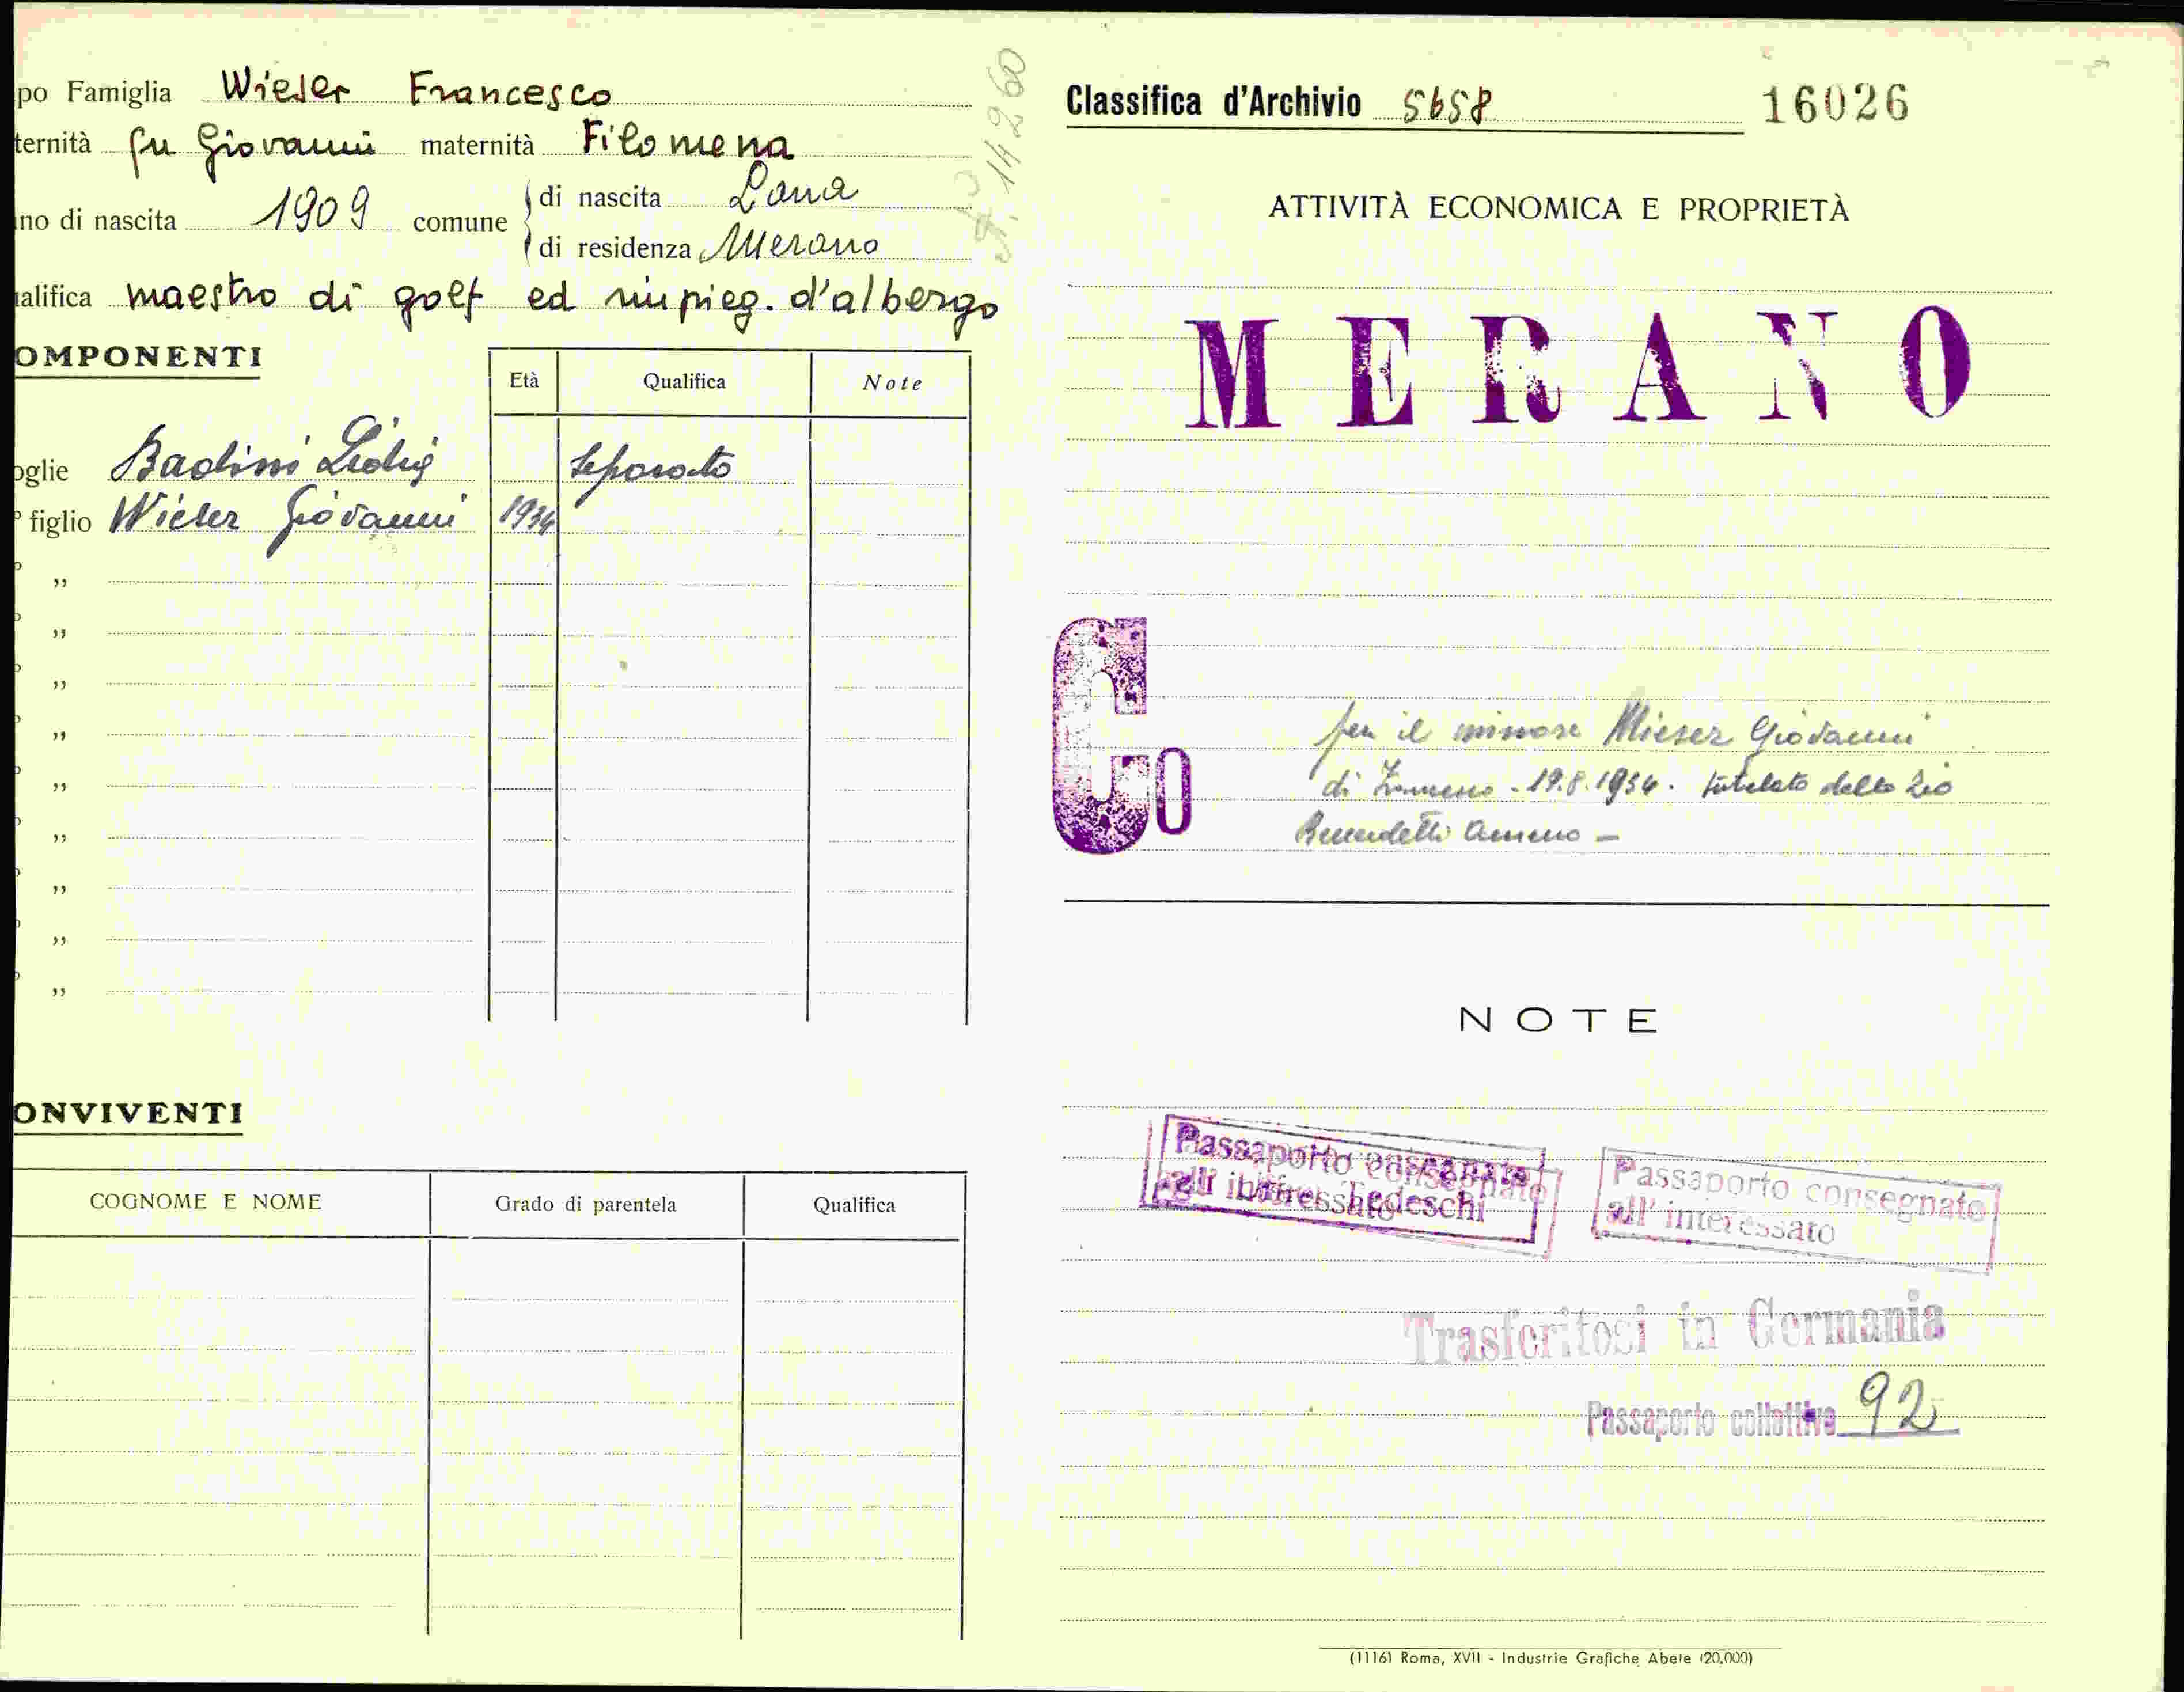 po Famiglia Wieser Francesco
ternità fu Giovanni maternità Filomena
no di nascita 1909 comune di nascita Lana
di residenza Merano
alifica maestro di golf ed impieg. d'albergo
OMPONENTI
Età Qualifica Note
oglie Badini separato
figlio Wieser Giovanni 1934
„
„
„
„
„
„
„
„
„
ONVIVENTI
COGNOME E NOME Grado di parentela Qualifica
14260
Classifica d'Archivio 5658 16026
ATTIVITÀ ECONOMICA E PROPRIETÀ
MERANO
Go
per il minore Wieser Giovanni
di 19.8.1934. tutelato dallo zio
Benedetti
NOTE
Passaporto consegnato
Tedeschi
Passaporto consegnato
all'interessato
Passaporto consegnato
all'interessato
Trasferitosi in Germania
Passaporto collettivo 92
(1116) Roma, XVII - Industrie Grafiche Abete (20.000)